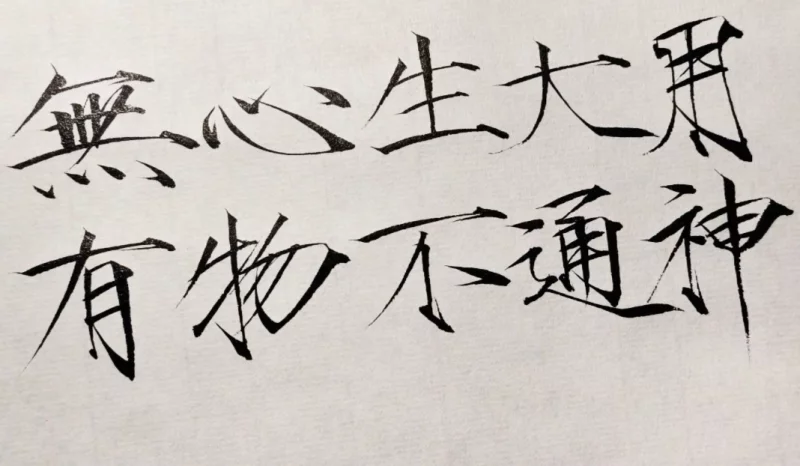 無心生大用
有物不通神